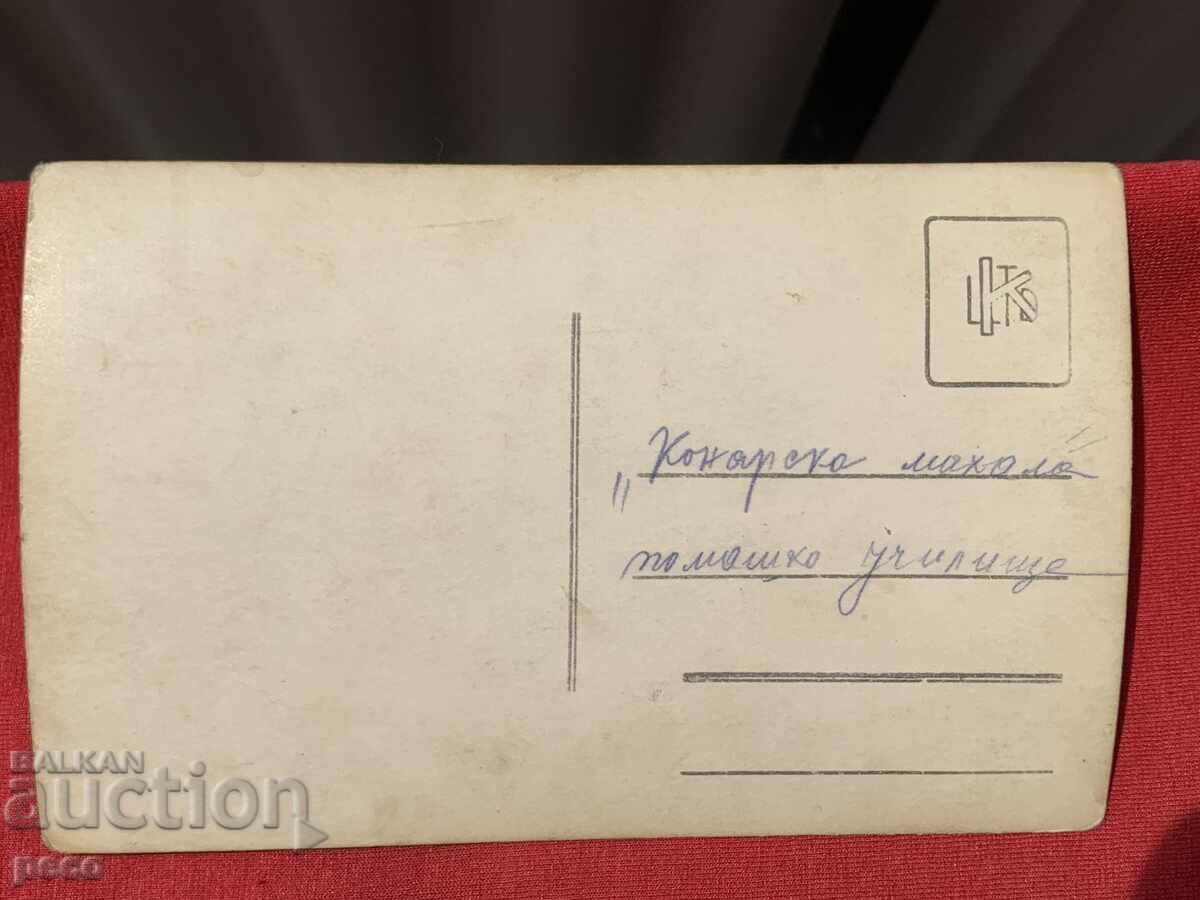 „Конарска махала"
помашко училище
BALKAN
auction
peco